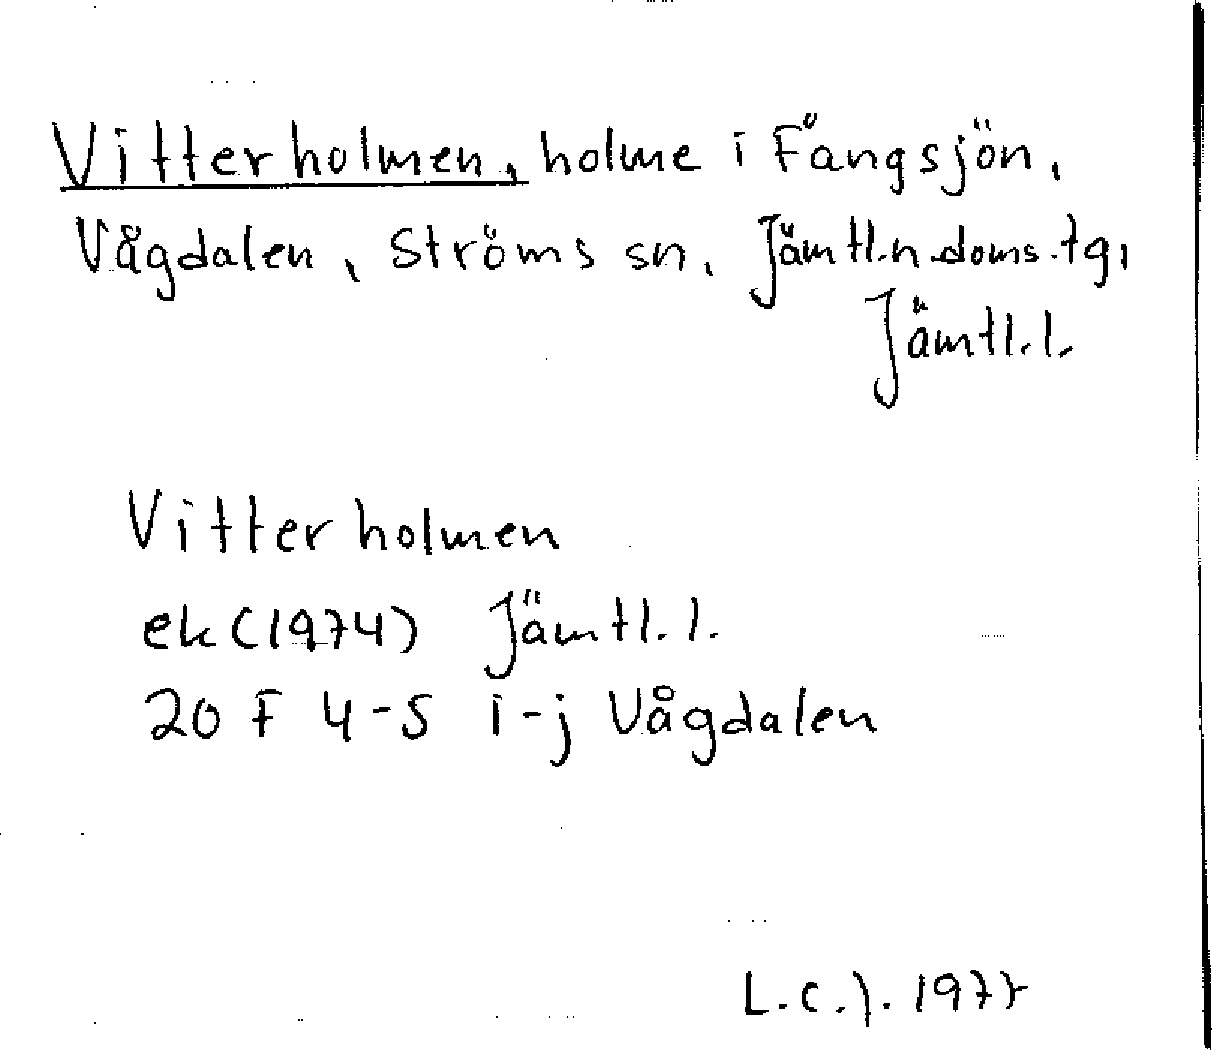 Vitterholmen, holme i Fångsjön,
Vågdalen, Ströms sn, Jämtl.n.doms.tg,
Jämtl.l.
Vitterholmen
ek (1974) Jämtl.l.
20 F 4-5 i-j Vågdalen
L.C.J. 1977